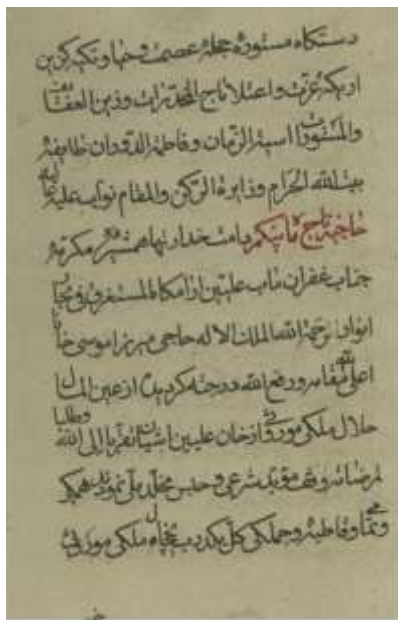 دستکاه مستوره حجله عصمت و حیا و تکیه کزین
اریکه عزت و اعتلا تاج المخدرات و زین العفائف
و المستورات آسیة الزمان و فاطمة الدوران طایفه
بیت الله الحرام و زایرة الرکن و المقام نواب علیه عالیه
حاجیه تاج ماه بیکم دامت خدارتها همشیره مکرمه
جناب غفران مآب علیین آرامکاه المستغرق فی بحار
انوار رحمة الله الملک الاله حاجی میرزا موسی خان
اعلی الله مقامه و رفع الله درجته کردید از عین المال
حلال ملکی موروثی از خان علیین آشیان تقربا الی الله و طلبا
لمرضاته وقف مؤبد شرعی و حبس مخلد ملی نمودند همکی
و تمامی و قاطبه و جملکی کل یکدرب خانه ملکی موروثی